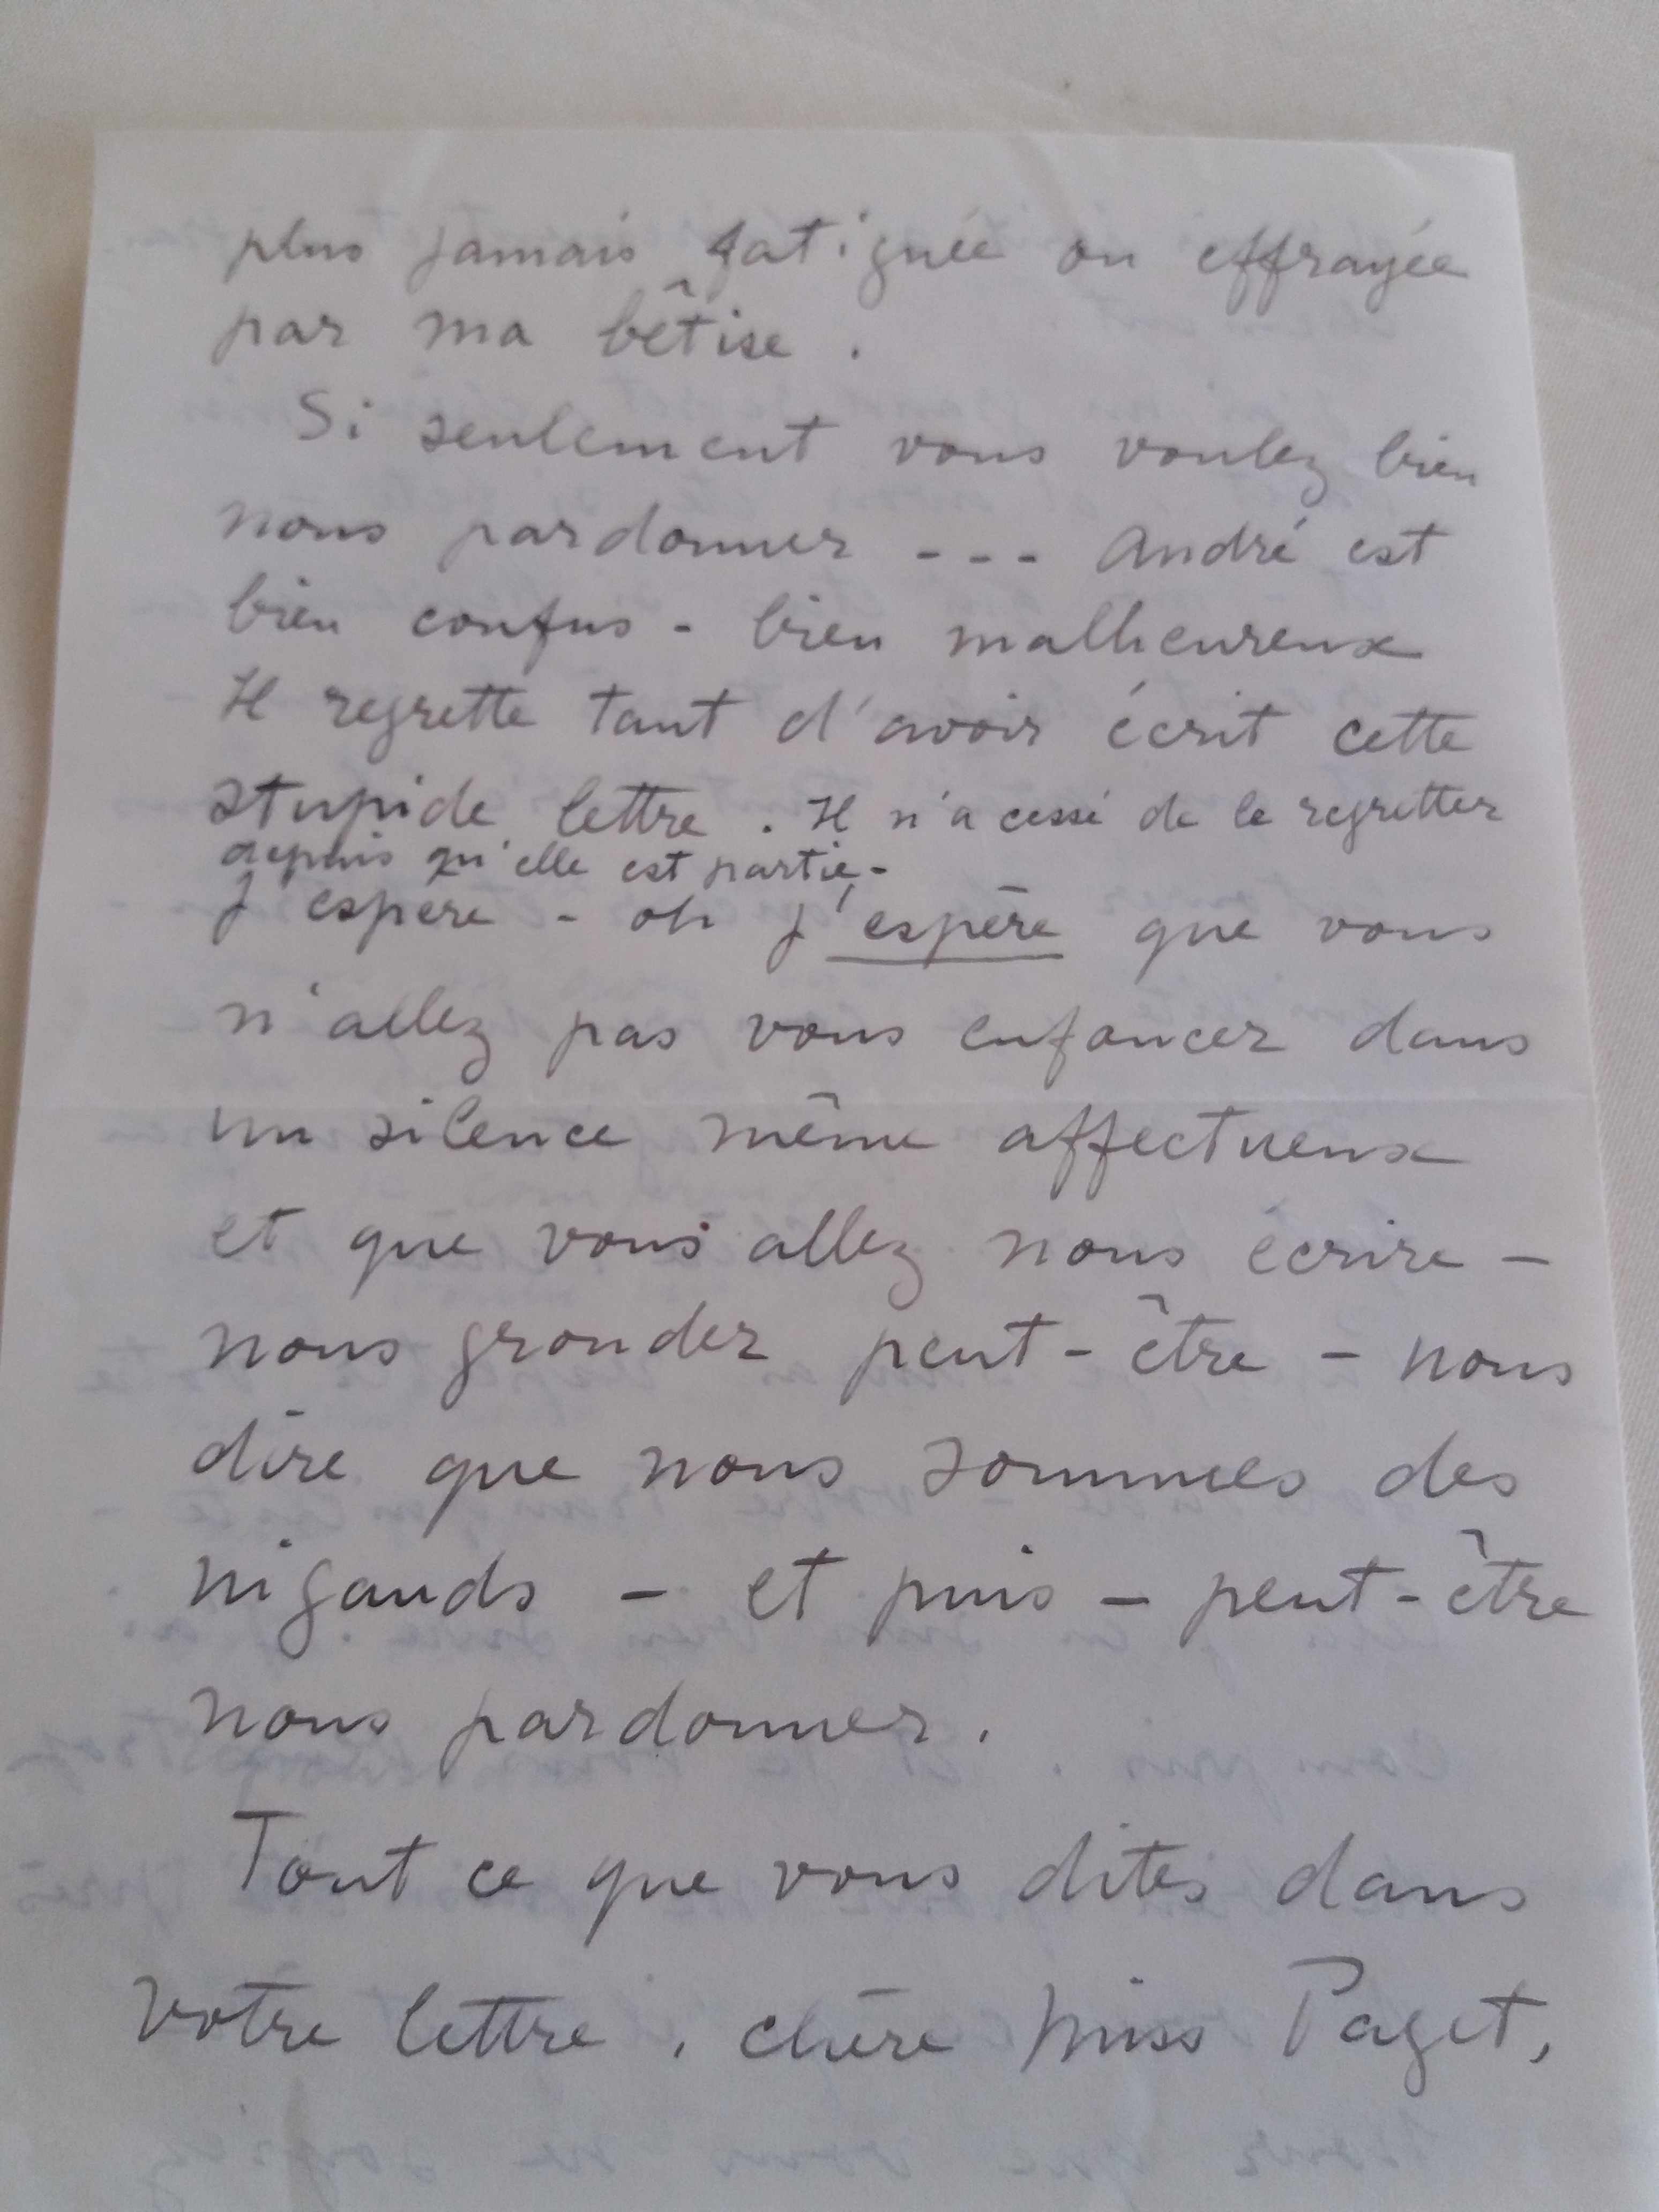 plus jamais fatiguée ou effrayée
par ma bêtise .
Si seulement vous voulez bien
nous pardonner - - - André est
bien confus - bien malheureux
Il regrette tant d'avoir écrit cette
stupide lettre . Il n'a cessé de le regretter
depuis qu'elle est partie -
J'espère - oh j'espère que vous
n'allez pas vous enfoncer dans
un silence même affectueux
et que vous allez nous écrire -
nous gronder peut-être - nous
dire que nous sommes des
nigauds - et puis - peut-être
nous pardonner .
Tout ce que vous dites dans
votre lettre , chère Miss Paget,